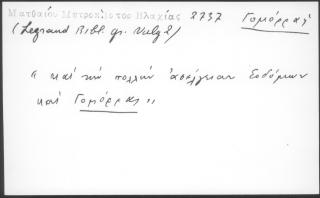 Ματθαίου Μητροπολίτου Βλαχίας 2737 Γομόρρας
(Legrand Bibl. gr. Vulg 2)
" καὶ τὴν πολλὴν ἀσέλγειαν Σοδόμων
καὶ Γομόρρας "